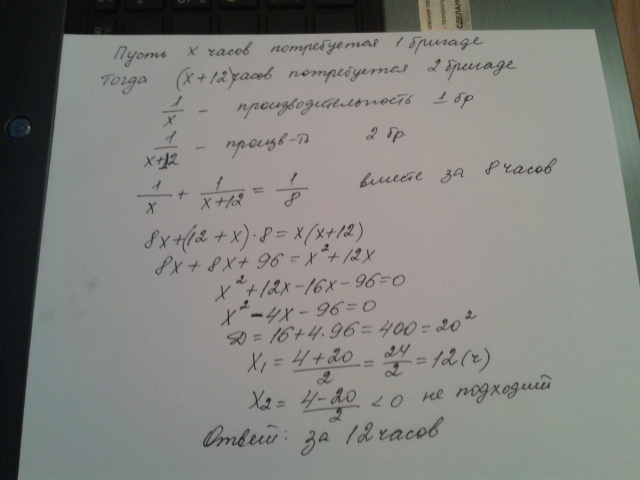 Пусть x часов потребуется 1 бригаде
Тогда (x+12) часов потребуется 2 бригаде
1/x – производительность 1 бр
1/(x+12) – произв-ть 2 бр
1/x + 1/(x+12) = 1/8 вместе за 8 часов
8x+(12+x)·8=x(x+12)
8x+8x+96=x²+12x
x²+12x-16x-96=0
x²-4x-96=0
D=16+4·96=400=20²
x₁=(4+20)/2=24/2=12(ч)
x₂=(4-20)/2<0 не подходит
Ответ: за 12 часов